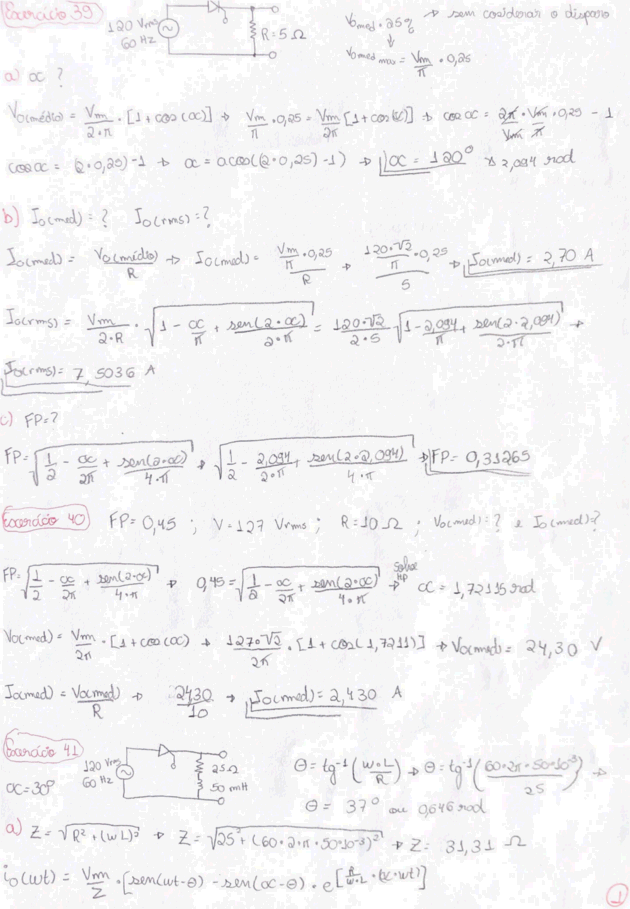 Exercício 39
120 Vrms
60 Hz
R = 5 Ω
Vomed = 25% → sem cosiderar o disparo
Vomed max = Vm/π · 0,25
a) α ?
Vo(médio) = Vm/2·π · [1 + cos(α)] → Vm/π · 0,25 = Vm/2π [1 + cos(α)] → cos α = 2π/Vm · Vm/π · 0,25 − 1
cos α = (2·0,25) − 1 → α = acos(2·0,25) − 1) → α = 120° ou 2,094 rad
b) Io(med) = ? Io(rms) = ?
Io(med) = Vo(médio)/R → Io(med) = Vm/π · 0,25/R → 120·√2/π · 0,25/5 → Io(med) = 2,70 A
Io(rms) = Vm/2·R · √(1 − α/π + sen(2·α)/2·π) = 120·√2/2·5 √(1 − 2,094/π + sen(2·2,094)/2·π) →
Io(rms) = 7,5036 A
c) FP = ?
FP = √(1/2 − α/2π + sen(2·α)/4·π) → √(1/2 − 2,094/2π + sen(2·2,094)/4·π) → FP = 0,31265
Exercício 40 FP = 0,45 ; V = 127 Vrms ; R = 10 Ω ; Vo(med) = ? e Io(med) = ?
FP = √(1/2 − α/2π + sen(2·α)/4·π) → 0,45 = √(1/2 − α/2π + sen(2·α)/4·π) → Solve HP α = 1,72115 rad
Vo(med) = Vm/2π · [1 + cos(α) → 127·√2/2π · [1 + cos(1,7211)] → Vo(med) = 24,30 V
Io(med) = Vo(med)/R → 24,30/10 → Io(med) = 2,430 A
Exercício 41
α = 30°
120 Vrms
60 Hz
25 Ω
50 mH
θ = tg⁻¹(w·L/R) → θ = tg⁻¹(60·2π·50·10⁻³/25) →
θ = 37° ou 0,646 rad
a) Z = √(R² + (wL)²) → Z = √(25² + (60·2·π·50·10⁻³)²) → Z = 31,31 Ω
io(wt) = Vm/Z · [sen(wt − θ) − sen(α − θ) · e^[R/w·L · (α − wt)]]
1